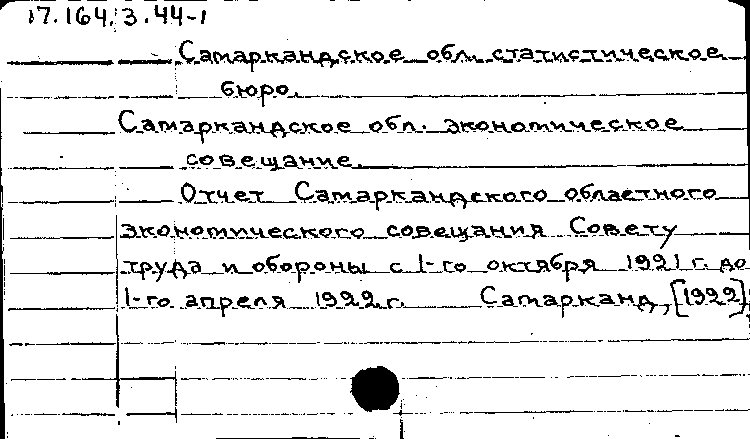 17.164.3.44-1
Самаркандское обл. статистическое
бюро.
Самаркандское обл. экономическое
совещание.
Отчет Самаркандского областного
экономического совещания Совету
труда и обороны с 1-го октября 1921 г. до
1-го апреля 1922 г. Самарканд, [1922]